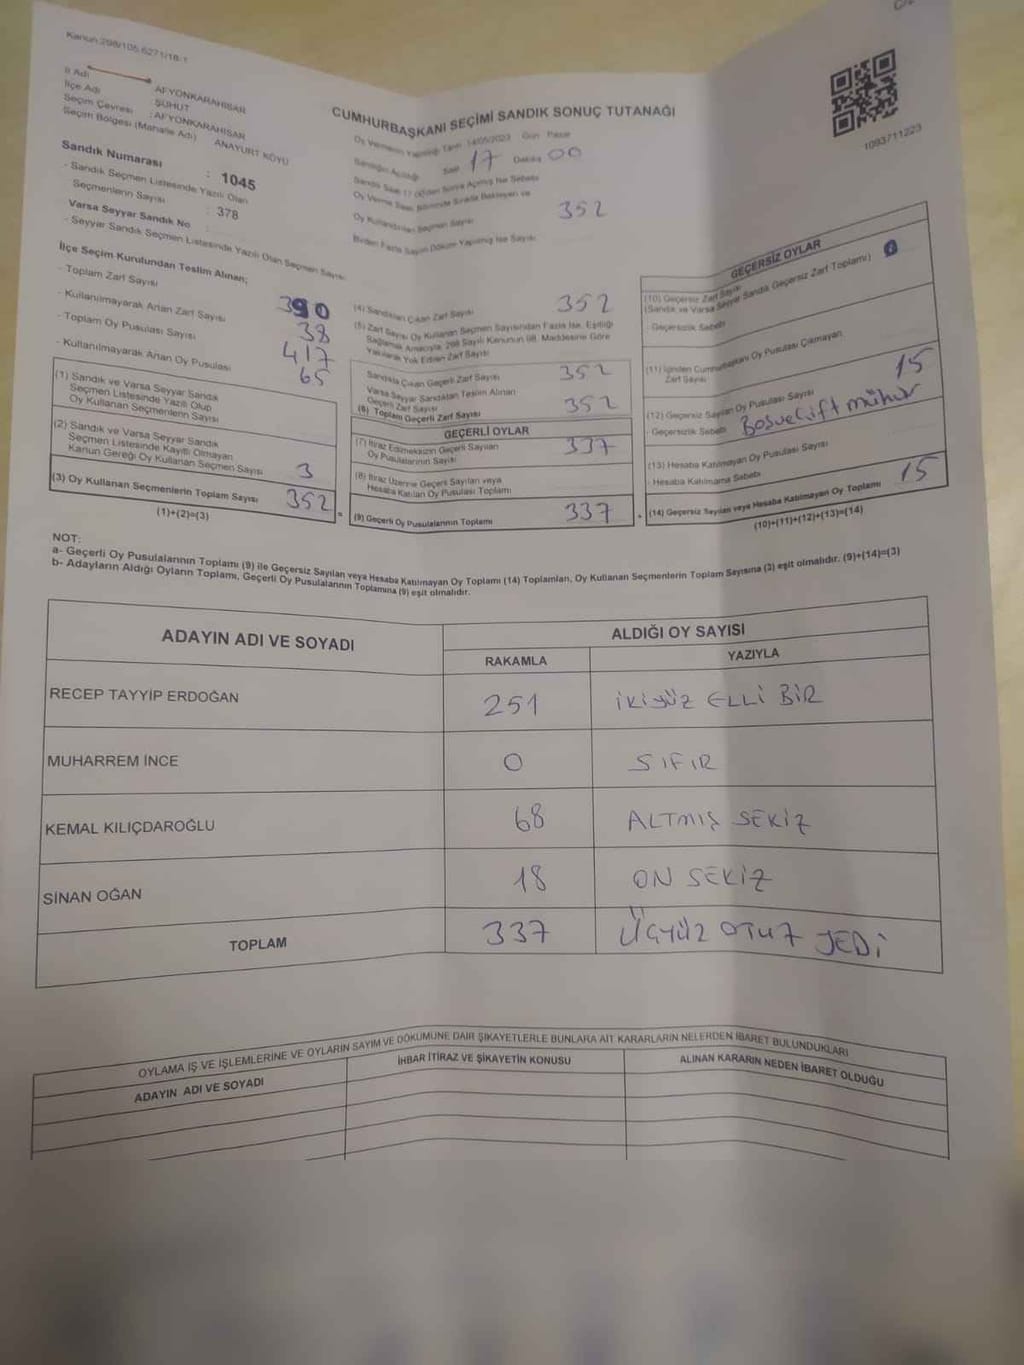 Kanun:298/105,6271/18-1
İl Adı : AFYONKARAHİSAR
İlçe Adı : ŞUHUT
Seçim Çevresi : AFYONKARAHİSAR
Seçim Bölgesi (Mahalle Adı) : ANAYURT KÖYÜ
Sandık Numarası : 1045
- Sandık Seçmen Listesinde Yazılı Olan
Seçmenlerin Sayısı : 378
Varsa Seyyar Sandık No :
- Seyyar Sandık Seçmen Listesinde Yazılı Olan Seçmen Sayısı:
CUMHURBAŞKANI SEÇİMİ SANDIK SONUÇ TUTANAĞI
Oy Vermenin Yapıldığı Tarih 14/05/2023 Gün Pazar
Sandığın Açıldığı Saat 17 Dakika 00
Oy Kullandırılan Seçmen Sayısı 352
Birden Fazla Sayım Döküm Yapılmış İse Sayısı
1093711223
İlçe Seçim Kurulundan Teslim Alınan;
- Toplam Zarf Sayısı 390
- Kullanılmayarak Artan Zarf Sayısı 38
- Toplam Oy Pusulası Sayısı 417
- Kullanılmayarak Artan Oy Pusulası 65
(1) Sandık ve Varsa Seyyar Sandık
Seçmen Listesinde Yazılı Olup
Oy Kullanan Seçmenlerin Sayısı
(2) Sandık ve Varsa Seyyar Sandık
Seçmen Listesinde Kayıtlı Olmayan
Kanun Gereği Oy Kullanan Seçmen Sayısı 3
(3) Oy Kullanan Seçmenlerin Toplam Sayısı 352
(1)+(2)=(3)
(4) Sandıktan Çıkan Zarf Sayısı 352
(5) Zarf Sayısı Oy Kullanan Seçmen Sayısından Fazla İse, Eşitliği
Sağlamak Amacıyla, 298 Sayılı Kanunun 98. Maddesine Göre
Yakılarak Yok Edilen Zarf Sayısı
Sandıkta Çıkan Geçerli Zarf Sayısı 352
Varsa Seyyar Sandıktan Teslim Alınan
Geçerli Zarf Sayısı
(6) Toplam Geçerli Zarf Sayısı 352
GEÇERLİ OYLAR
(7) İtiraz Edilmeksizin Geçerli Sayılan
Oy Pusulalarının Sayısı 337
(8) İtiraz Üzerine Geçerli Sayılan veya
Hesaba Katılan Oy Pusulası Toplamı
(9) Geçerli Oy Pusulalarının Toplamı 337
GEÇERSİZ OYLAR
(10) Geçersiz Zarf Sayısı
(Sandık ve Varsa Seyyar Sandık Geçersiz Zarf Toplamı)
- Geçersizlik Sebebi
(11) İçinden Cumhurbaşkanı Oy Pusulası Çıkmayan
Zarf Sayısı
(12) Geçersiz Sayılan Oy Pusulası Sayısı 15
- Geçersizlik Sebebi Boş ve Çift mühür
(13) Hesaba Katılmayan Oy Pusulası Sayısı
- Hesaba Katılmama Sebebi
(14) Geçersiz Sayılan veya Hesaba Katılmayan Oy Toplamı 15
(10)+(11)+(12)+(13)=(14)
NOT:
a- Geçerli Oy Pusulalarının Toplamı (9) ile Geçersiz Sayılan veya Hesaba Katılmayan Oy Toplamı (14) Toplamları, Oy Kullanan Seçmenlerin Toplam Sayısına (3) eşit olmalıdır. (9)+(14)=(3)
b- Adayların Aldığı Oyların Toplamı, Geçerli Oy Pusulalarının Toplamına (9) eşit olmalıdır.
ADAYIN ADI VE SOYADI
ALDIĞI OY SAYISI
RAKAMLA YAZIYLA
RECEP TAYYİP ERDOĞAN 251 İKİYÜZ ELLİ BİR
MUHARREM İNCE 0 SIFIR
KEMAL KILIÇDAROĞLU 68 ALTMIŞ SEKİZ
SİNAN OĞAN 18 ON SEKİZ
TOPLAM 337 ÜÇYÜZ OTUZ YEDİ
OYLAMA İŞ VE İŞLEMLERİNE VE OYLARIN SAYIM VE DÖKÜMÜNE DAİR ŞİKAYETLERLE BUNLARA AİT KARARLARIN NELERDEN İBARET BULUNDUKLARI
ADAYIN ADI VE SOYADI
İHBAR İTİRAZ VE ŞİKAYETİN KONUSU
ALINAN KARARIN NEDEN İBARET OLDUĞU